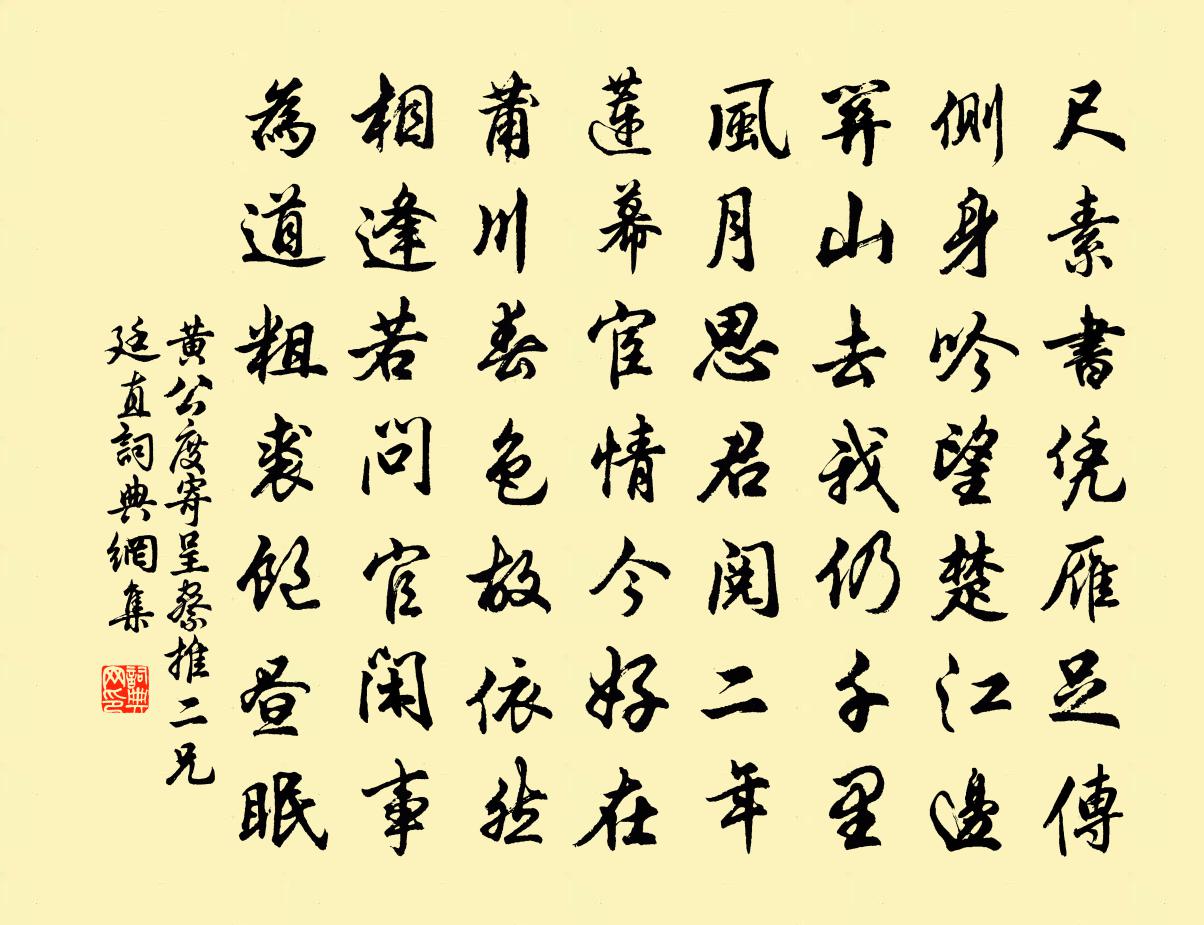 尺素書凭雁足傳
側身吟望楚江邊
關山去我仍千里
風月思君閱二年
蓮幕宦情今好在
莆川春色故依然
相逢若問官閑事
為道粗裘飽晝眠
黃公度寄呈察推二兄
廷直詞典網集
詞典
网印